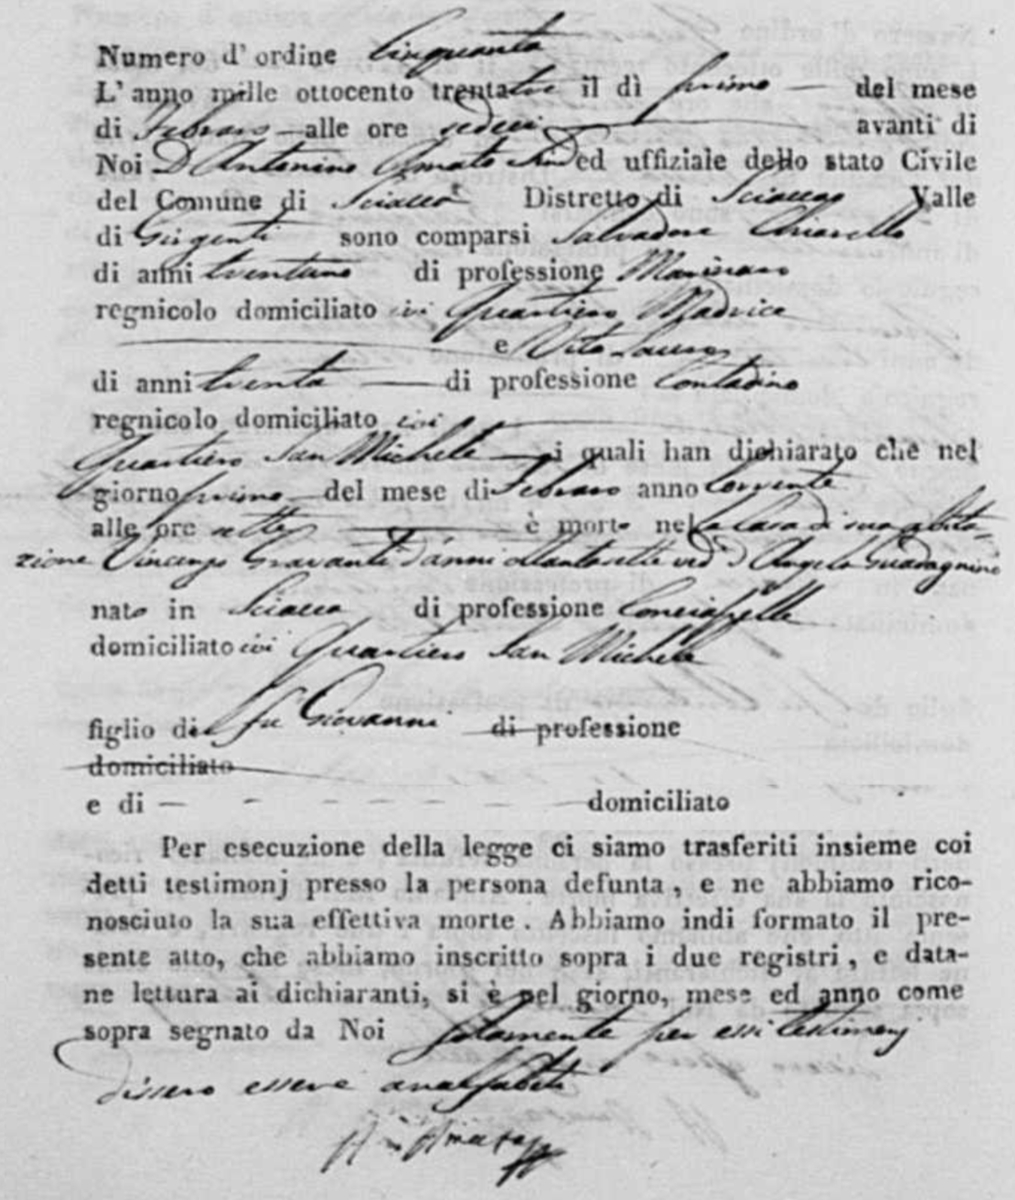 Numero d' ordine Cinquanta
L' anno mille ottocento trentatre il dì primo — del mese
di Febraro — alle ore sedeci — avanti di
Noi D. Antonino Amato Sind ed uffiziale dello stato Civile
del Comune di Sciacca Distretto di Sciacca Valle
di Girgenti sono comparsi Salvadore Chiarello
di anni trentuno di professione Marinaro
regnicolo domiciliato ivi Quartiero Madrice
e Vito
di anni trenta — di professione Contadino
regnicolo domiciliato ivi
Quartiero San Michele — i quali han dichiarato che nel
giorno primo — del mese di Febraro anno corrente
alle ore sette — è morto nella Casa di sua abita-
zione Vincenzo Gravanti d'anni ottantasette ved. d'Angela Guadagnino
nato in Sciacca di professione
domiciliato ivi Quartiero San Michele
figlio del fu Giovanni di professione
domiciliato
e di — — — — — — — domiciliato
Per esecuzione della legge ci siamo trasferiti insieme coi
detti testimonj presso la persona defunta, e ne abbiamo rico-
nosciuto la sua effettiva morte. Abbiamo indi formato il pre-
sente atto, che abbiamo inscritto sopra i due registri, e data-
ne lettura ai dichiaranti, si è nel giorno, mese ed anno come
sopra segnato da Noi solamente per essi testimonj
dissero essere analfabeti
Amato